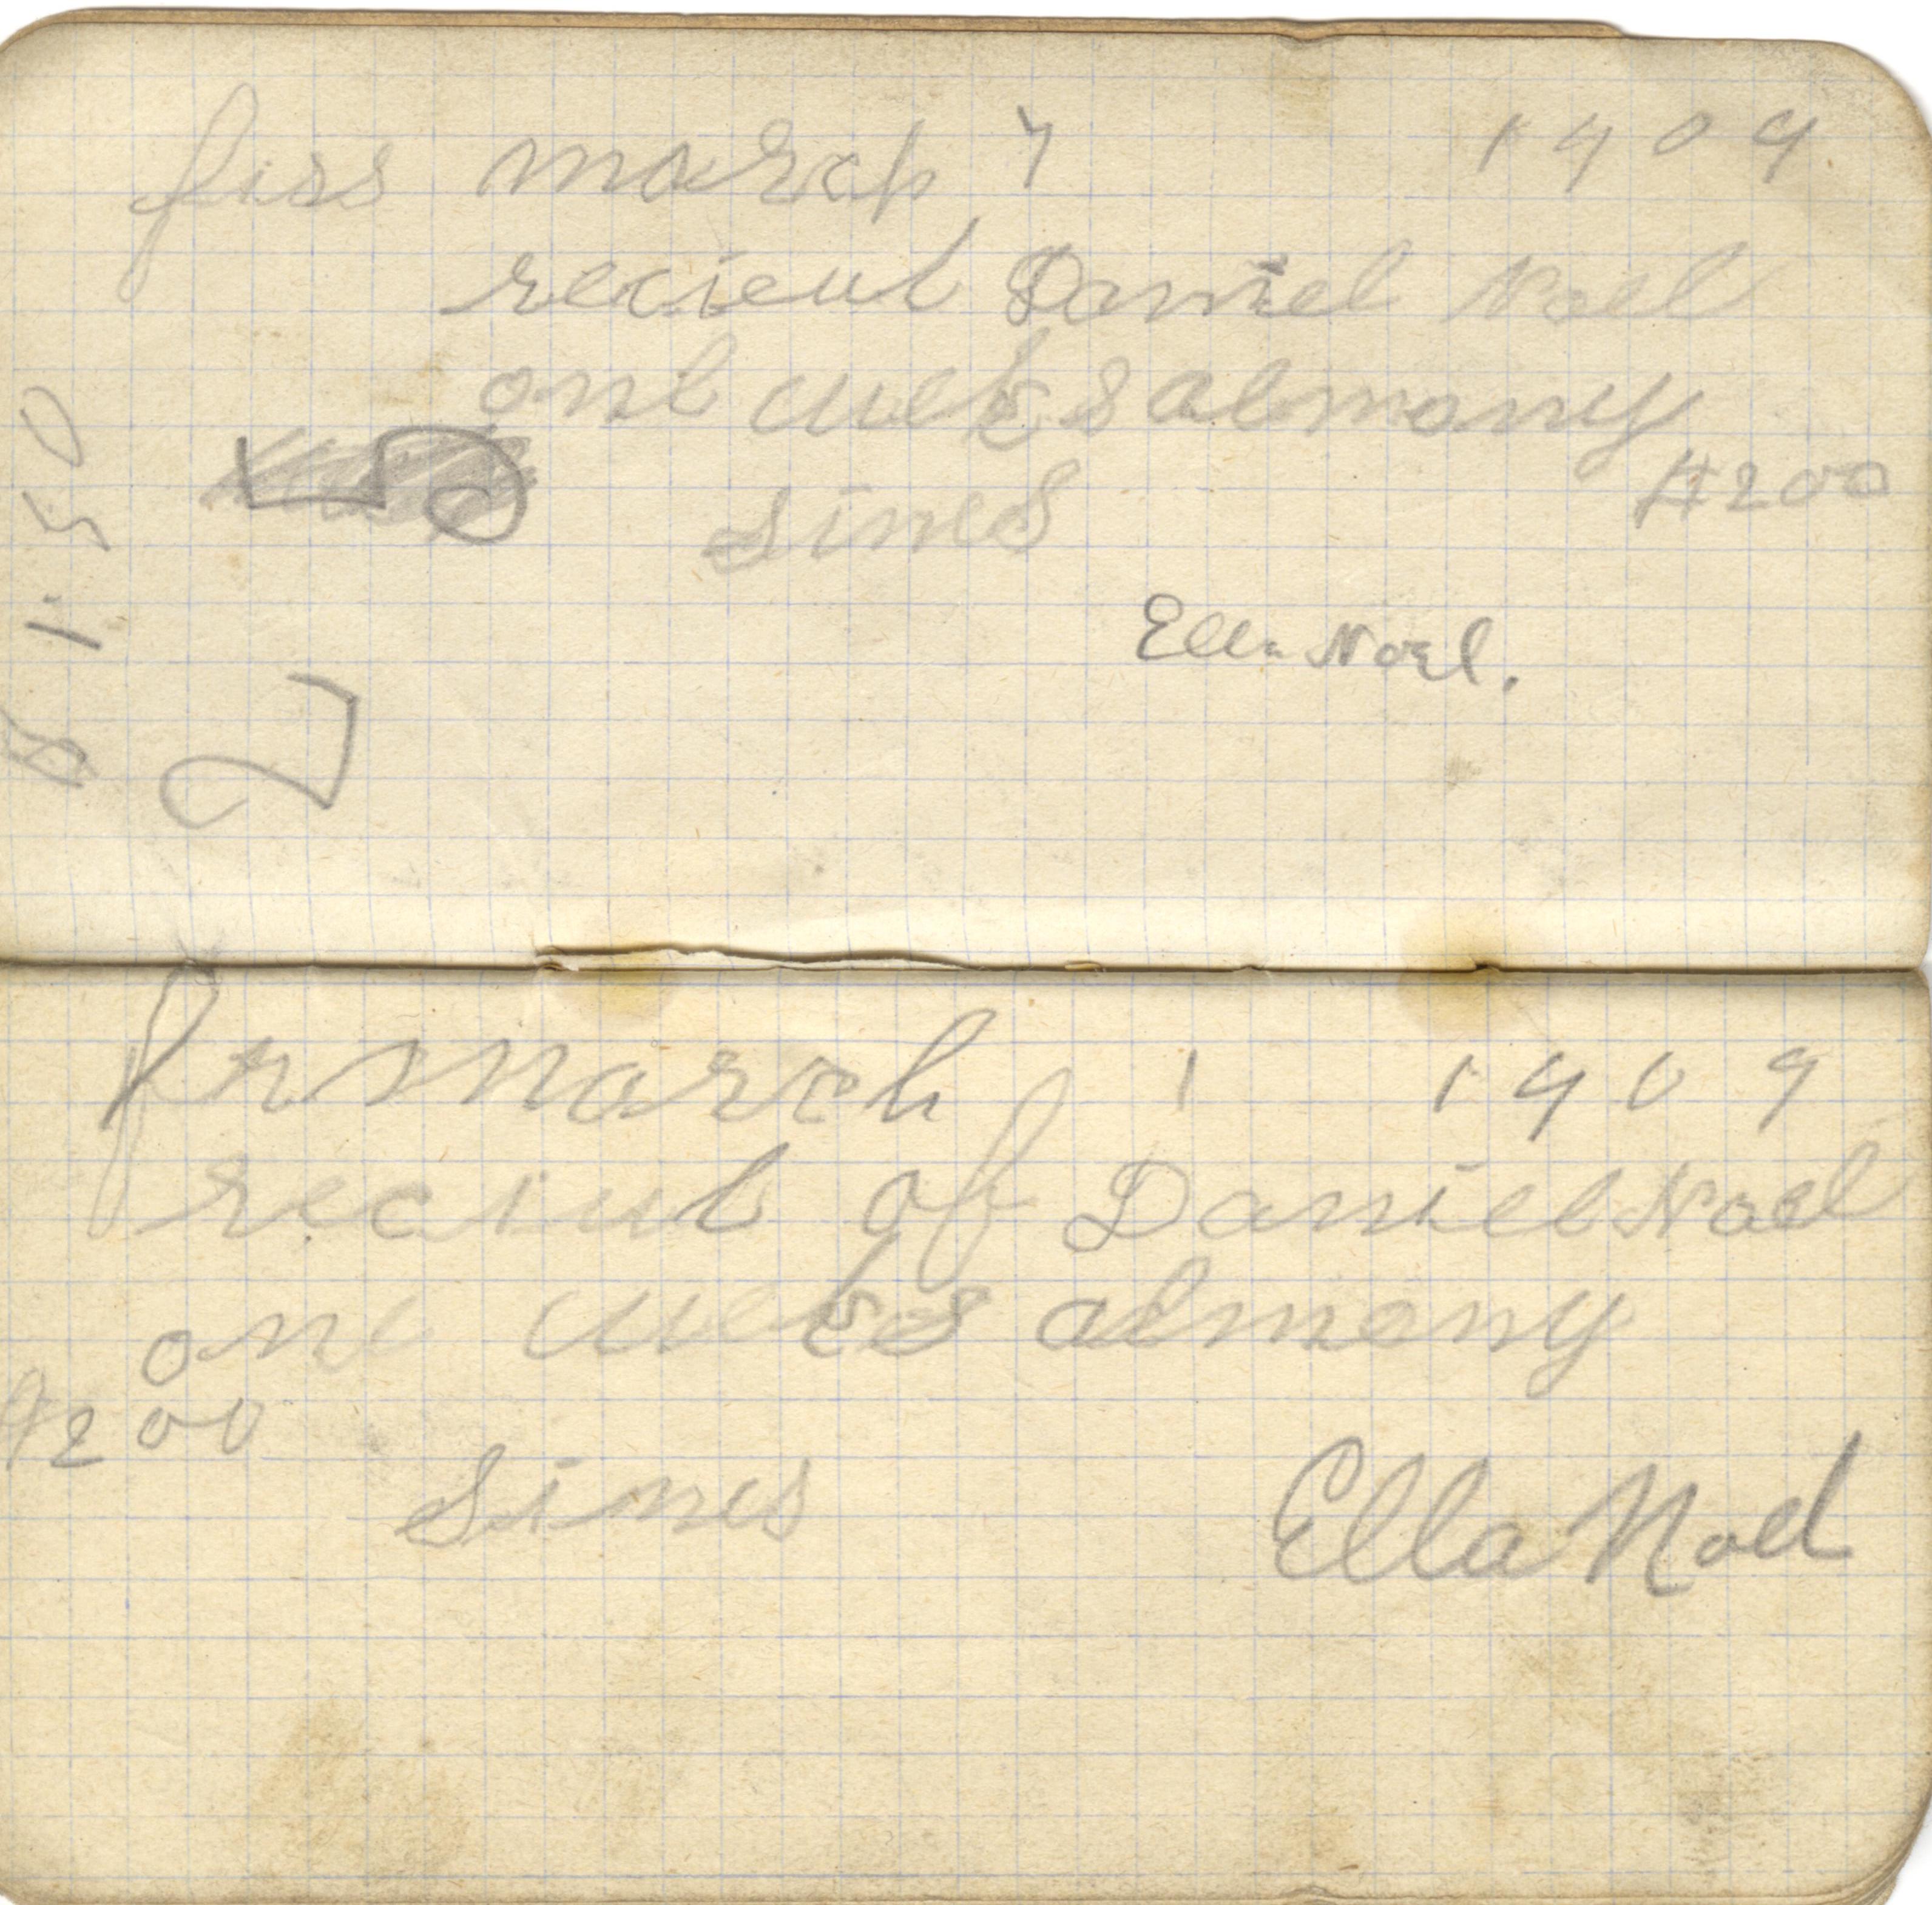 fiss march 7 1909
recieul Daniel Noel
one weeks almony
$200
sines
Ella Noel.
$1.50
fr march 1 1909
reciul of Daniel Noel
one weeks almony
$200
Sines
Ella Noel